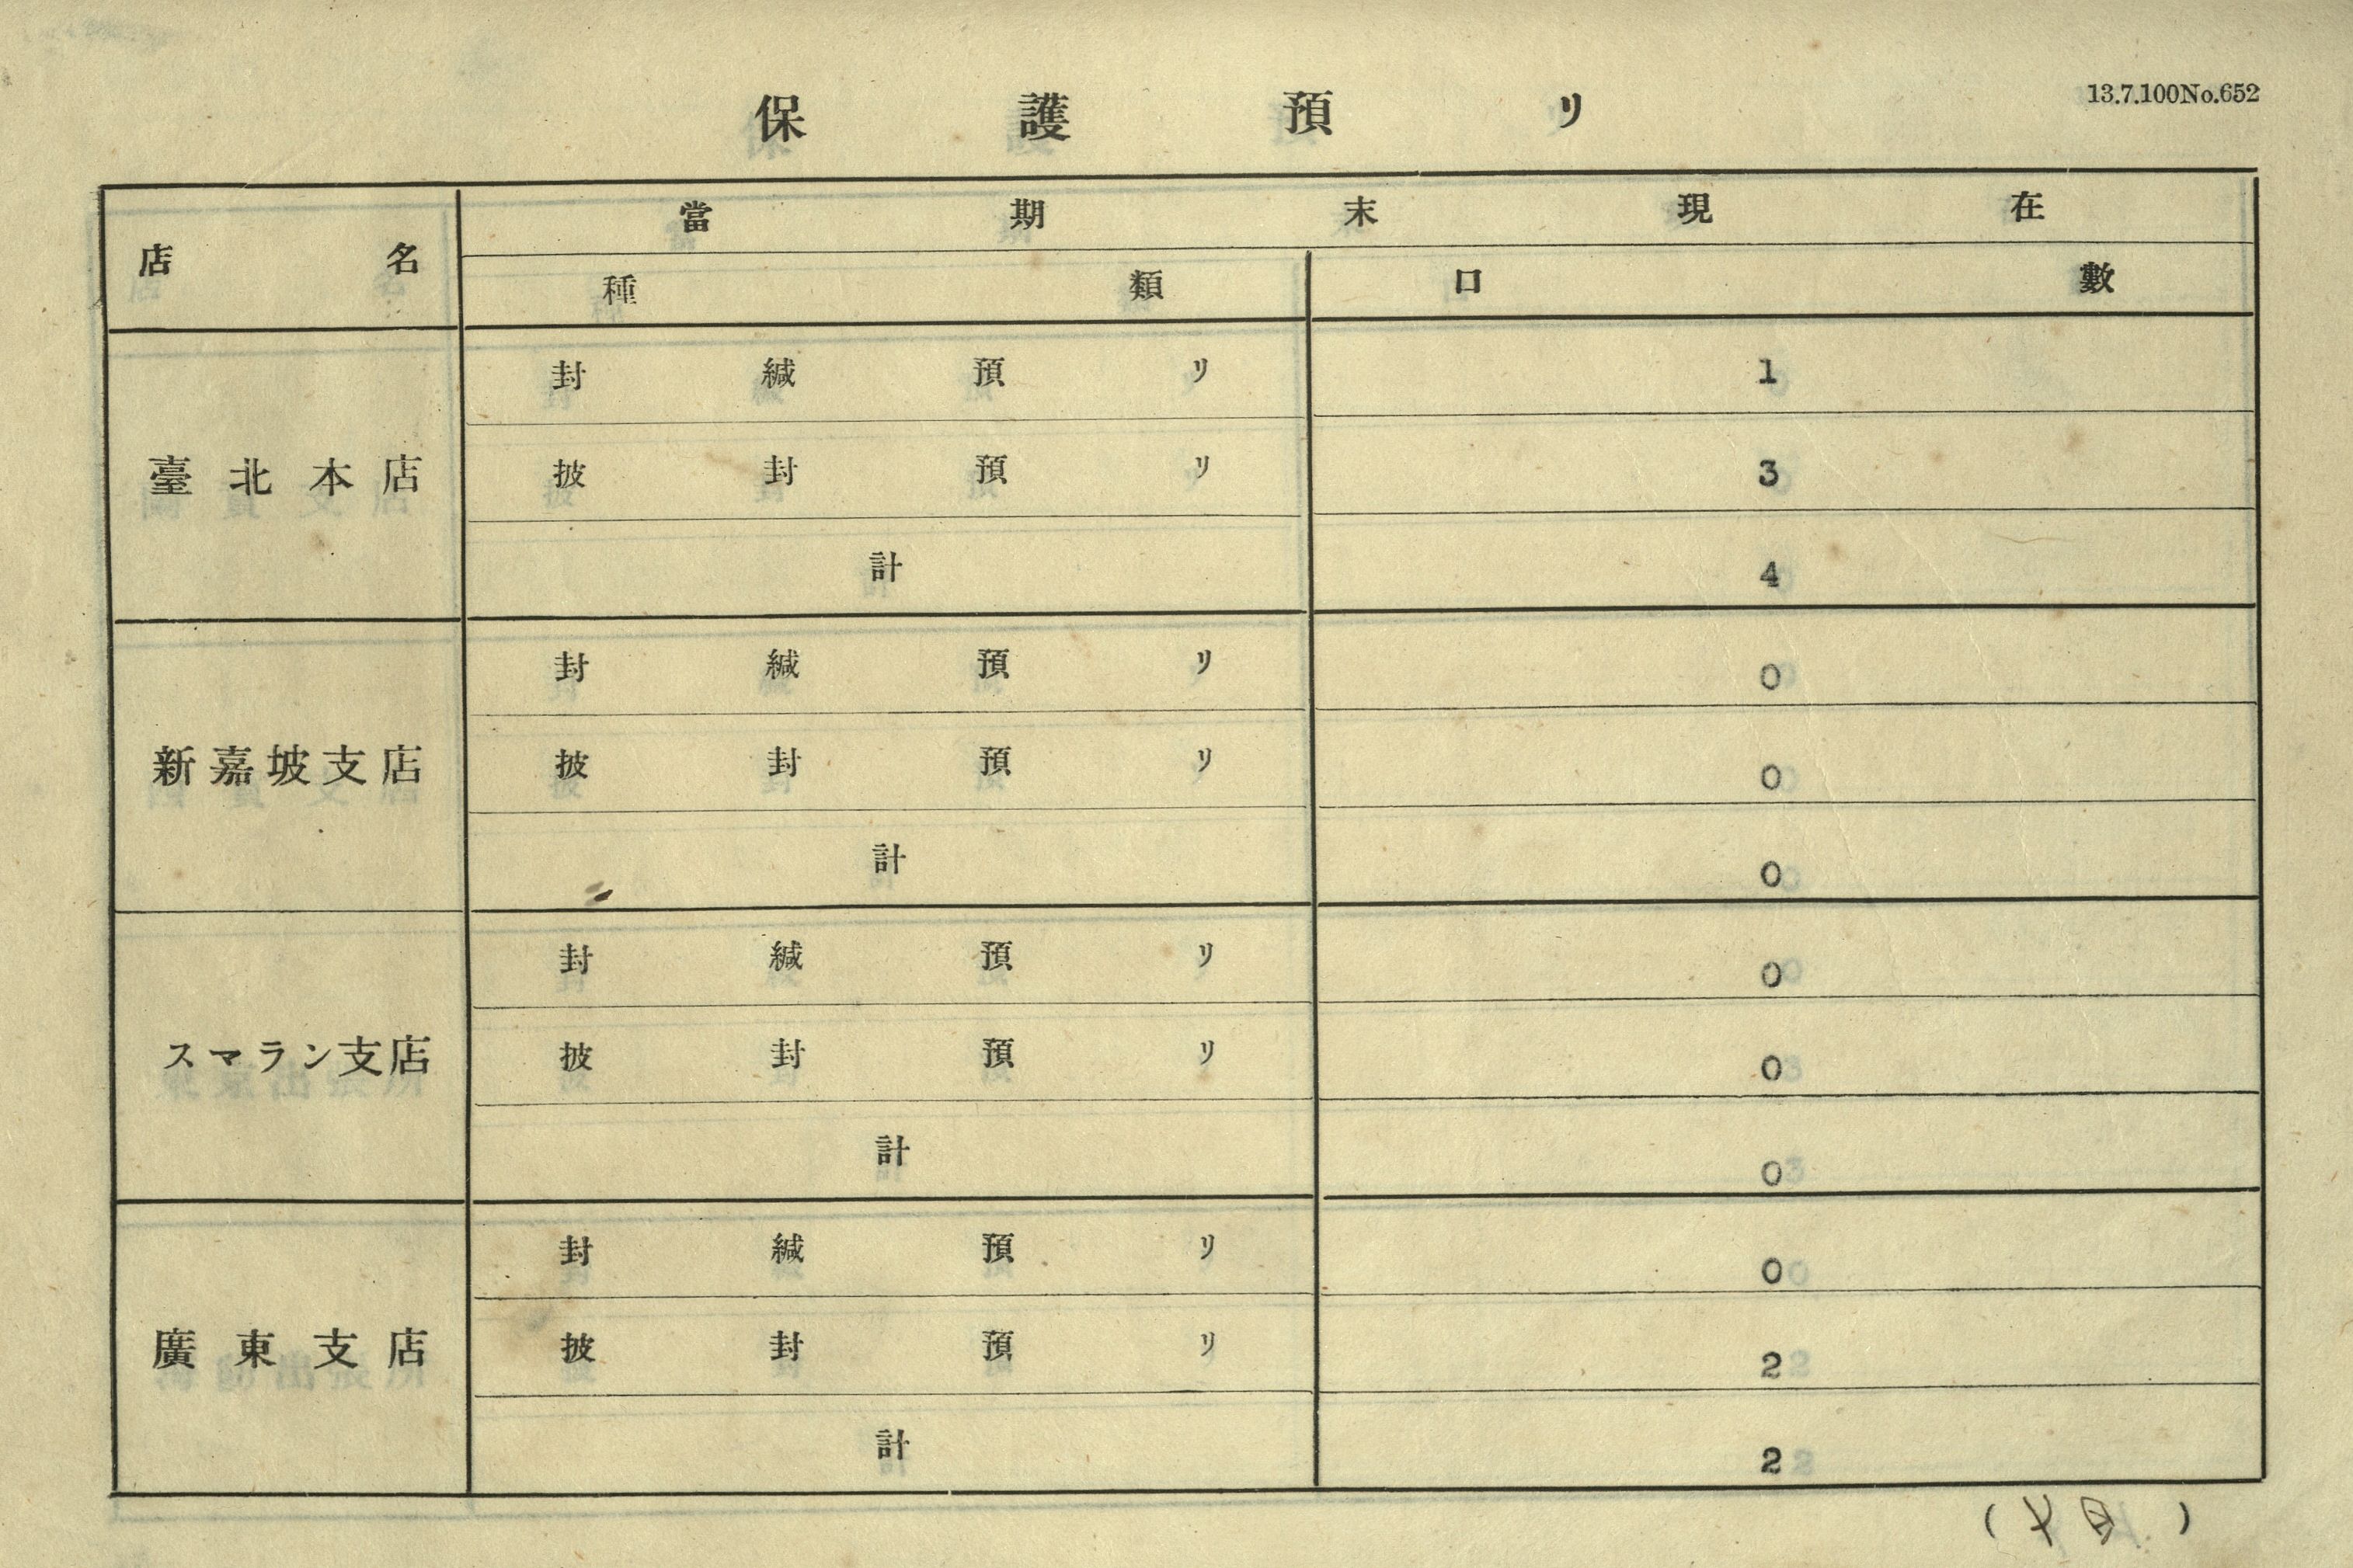 13.7.100No.652
保護預リ
店名 當期末現在
種類 口數
臺北本店 封緘預リ 1
披封預リ 3
計 4
新嘉坡支店 封緘預リ 0
披封預リ 0
計 0
スマラン支店 封緘預リ 0
披封預リ 0
計 0
廣東支店 封緘預リ 0
披封預リ 2
計 2